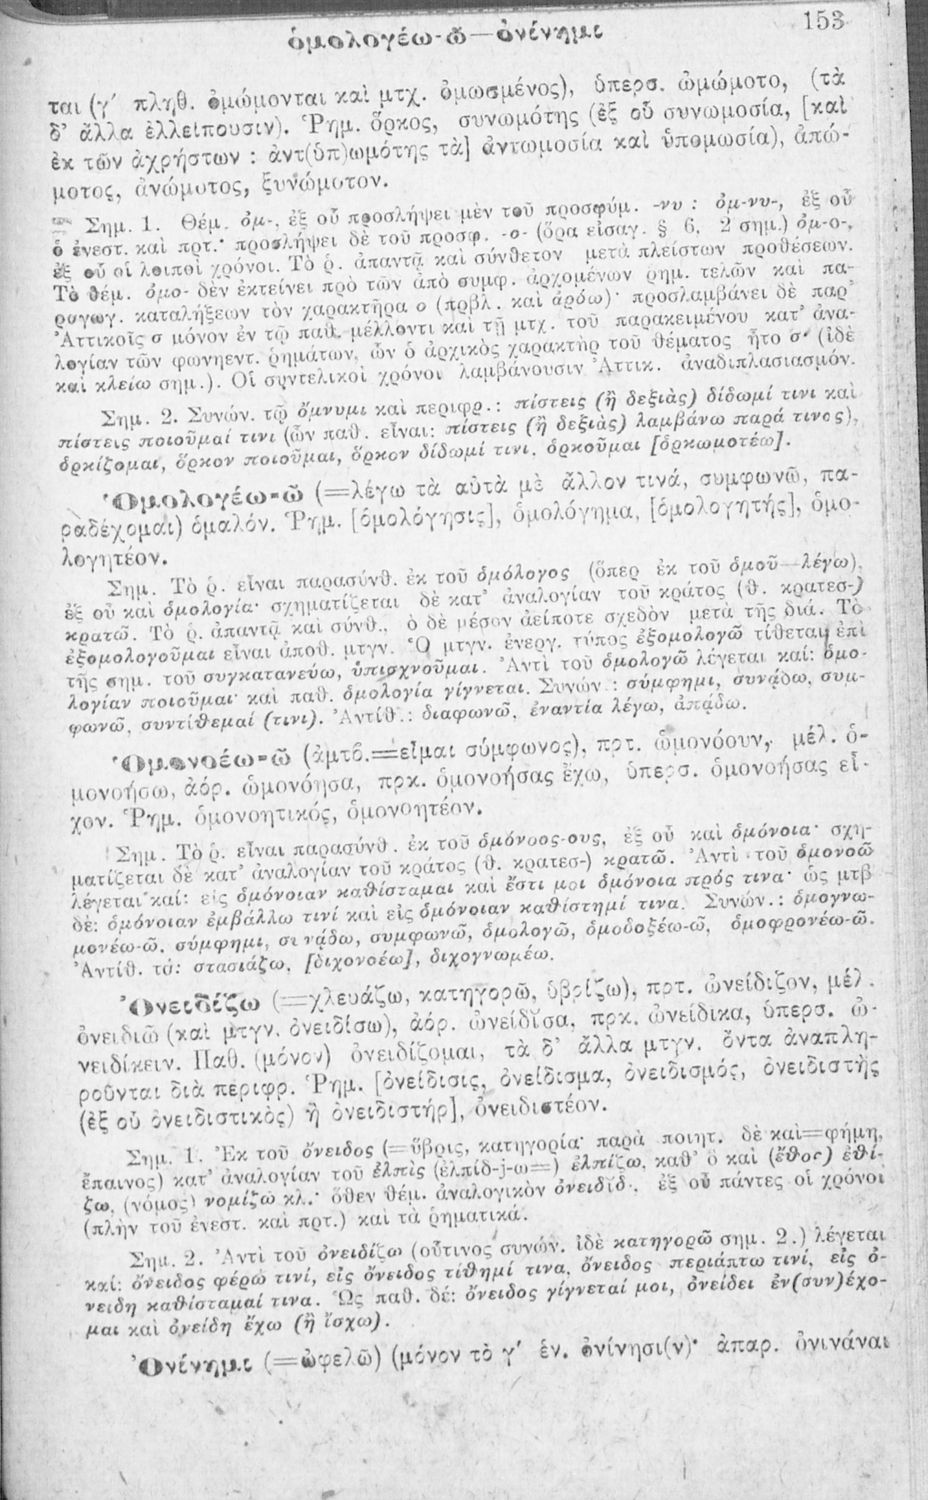 ὁμολογέω-ῶ—ὀνίνημι 153
ται (γ΄ πληθ. ὀμώμονται καὶ μτχ. ὀμωσμένος), ὑπερσ. ὠμώμοτο, (τὰ
δ' ἄλλα ἐλλείπουσιν). Ῥημ. ὅρκος, συνωμότης (ἐξ οὗ συνωμοσία, [καὶ
ἐκ τῶν ἀχρήστων : ἀντ(ὑπ)ωμότης τὰ] ἀντωμοσία καὶ ὑπωμωσία), ἀπώ-
μοτος, ἀνώμοτος, ξυνώμοτον.
Σημ. 1. Θέμ. ὀμ-, ἐξ οὗ προσλήψει μὲν τοῦ προσφύμ. -νυ : ὀμ-νυ-, ἐξ οὗ
ὁ ἐνεστ. καὶ πρτ.· προσλήψει δὲ τοῦ προσφ. -ο- (ὅρα εἰσαγ. § 6, 2 σημ.) ὀμ-ο-,
ἐξ οὗ οἱ λοιποὶ χρόνοι. Τὸ ῥ. ἀπαντᾷ καὶ σύνθετον μετὰ πλείστων προθέσεων.
Τὸ θέμ. ὀμο- δὲν ἐκτείνει πρὸ τῶν ἀπὸ συμφ. ἀρχομένων ῥημ. τελῶν καὶ πα-
ραγωγ. καταλήξεων τὸν χαρακτῆρα ο (πρβλ. καὶ ἀρόω)· προσλαμβάνει δὲ παρ'
Ἀττικοῖς σ μόνον ἐν τῷ παθ. μέλλοντι καὶ τῇ μτχ. τοῦ παρακειμένου κατ' ἀνα-
λογίαν τῶν φωνηεντ. ῥημάτων, ὧν ὁ ἀρχικὸς χαρακτὴρ τοῦ θέματος ἦτο σ· (ἰδὲ
καὶ κλείω σημ.). Οἱ συντελικοὶ χρόνοι λαμβάνουσιν Ἀττικ. ἀναδιπλασιασμόν.
Σημ. 2. Συνών. τῷ ὄμνυμι καὶ περιφρ.: πίστεις (ἢ δεξιὰς) δίδωμί τινι καὶ
πίστεις ποιοῦμαί τινι (ὧν παθ. εἶναι: πίστεις (ἢ δεξιὰς) λαμβάνω παρά τινος),
ὁρκίζομαι, ὅρκον ποιοῦμαι, ὅρκον δίδωμί τινι, ὁρκοῦμαι [ὁρκωμοτέω].
Ὁμολογέω-ῶ (=λέγω τὰ αὐτὰ μὲ ἄλλον τινά, συμφωνῶ, πα-
ραδέχομαι) ὁμαλόν. Ῥημ. [ὁμολόγησις], ὁμολόγημα, [ὁμολογητής], ὁμο-
λογητέον.
Σημ. Τὸ ῥ. εἶναι παρασύνθ. ἐκ τοῦ ὁμόλογος (ὅπερ ἐκ τοῦ ὁμοῦ—λέγω),
ἐξ οὗ καὶ ὁμολογία· σχηματίζεται δὲ κατ' ἀναλογίαν τοῦ κράτος (θ. κρατεσ-)
κρατῶ. Τὸ ῥ. ἀπαντᾷ καὶ σύνθ., ὁ δὲ μέσον ἀείποτε σχεδὸν μετὰ τῆς διά. Τὸ
ἐξομολογοῦμαι εἶναι ἀποθ. μτγν. Ὁ μτγν. ἐνεργ. τύπος ἐξομολογῶ τίθεται ἐπὶ
τῆς σημ. τοῦ συγκατανεύω, ὑπισχνοῦμαι. Ἀντὶ τοῦ ὁμολογῶ λέγεται καί: ὁμο-
λογίαν ποιοῦμαι· καὶ παθ. ὁμολογία γίγνεται. Συνών.: σύμφημι, συνᾴδω, συμ-
φωνῶ, συντίθεμαί (τινι). Ἀντίθ.: διαφωνῶ, ἐναντία λέγω, ἀπᾴδω.
Ὁμονοέω-ῶ (ἀμτβ.=εἶμαι σύμφωνος), πρτ. ὡμονόουν, μέλ. ὁ-
μονοήσω, ἀόρ. ὡμονόησα, πρκ. ὁμονοήσας ἔχω, ὑπερσ. ὁμονοήσας εἶ-
χον. Ῥημ. ὁμονοητικός, ὁμονοητέον.
Σημ. Τὸ ῥ. εἶναι παρασύνθ. ἐκ τοῦ ὁμόνοος-ους, ἐξ οὗ καὶ ὁμόνοια· σχη-
ματίζεται δὲ κατ' ἀναλογίαν τοῦ κράτος (θ. κρατεσ-) κρατῶ. Ἀντὶ τοῦ ὁμονοῶ
λέγεται καί: εἰς ὁμόνοιαν καθίσταμαι καὶ ἔστι μοι ὁμόνοια πρός τινα· ὡς μτβ
δὲ: ὁμόνοιαν ἐμβάλλω τινί καὶ εἰς ὁμόνοιαν καθίστημί τινα. Συνών.: ὁμογνω-
μονέω-ῶ, σύμφημι, συνᾴδω, συμφωνῶ, ὁμολογῶ, ὁμοδοξέω-ῶ, ὁμοφρονέω-ῶ.
Ἀντίθ. τὰ: στασιάζω, [διχονοέω], διχογνωμέω.
Ὀνειδίζω (=χλευάζω, κατηγορῶ, ὑβρίζω), πρτ. ὠνείδιζον, μέλ.
ὀνειδιῶ (καὶ μτγν. ὀνειδίσω), ἀόρ. ὠνείδισα, πρκ. ὠνείδικα, ὑπερσ. ὠ-
νειδίκειν. Παθ. (μόνον) ὀνειδίζομαι, τὰ δ' ἄλλα μτγν. ὄντα ἀναπλη-
ροῦνται διὰ περιφρ. Ῥημ. [ὀνείδισις, ὀνείδισμα, ὀνειδισμός, ὀνειδιστὴς
(ἐξ οὗ ὀνειδιστικὸς) ἢ ὀνειδιστήρ], ὀνειδιστέον.
Σημ. 1. Ἐκ τοῦ ὄνειδος (=ὕβρις, κατηγορία· παρὰ ποιητ. δὲ καὶ=φήμη,
ἔπαινος) κατ' ἀναλογίαν τοῦ ἐλπὶς (ἐλπίδ-j-ω=) ἐλπίζω, καθ' ὃ καὶ (ἔθος) ἐθί-
ζω, (νόμος) νομίζω κλ.· ὅθεν θέμ. ἀναλογικὸν ὀνειδιδ-, ἐξ οὗ πάντες οἱ χρόνοι
(πλὴν τοῦ ἐνεστ. καὶ πρτ.) καὶ τὰ ῥηματικά.
Σημ. 2. Ἀντὶ τοῦ ὀνειδίζω (οὗτινος συνών. ἰδὲ κατηγορῶ σημ. 2.) λέγεται
καί: ὄνειδος φέρω τινί, εἰς ὄνειδος τίθημί τινα, ὄνειδος περιάπτω τινί, εἰς ὀ-
νείδη καθίσταμαί τινα. Ὡς παθ. δέ: ὄνειδος γίγνεταί μοι, ὀνείδει ἐν(συν)έχο-
μαι καὶ ὀνείδη ἔχω (ἢ ἴσχω).
Ὀνίνημι (=ὠφελῶ) (μόνον τὸ γ΄ ἑν. ὀνίνησι(ν)· ἀπαρ. ὀνινάναι